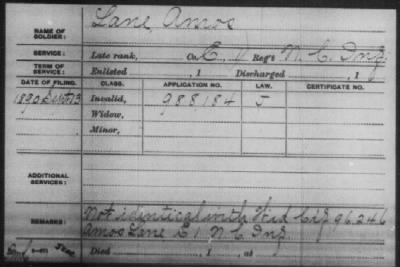 NAME OF SOLDIER: Lane, Amos
SERVICE: Late rank, Co. E, 1 Reg't N.C. Inf.
TERM OF SERVICE: Enlisted , 1 Discharged , 1
DATE OF FILING. CLASS. APPLICATION NO. LAW. CERTIFICATE NO.
1890 Sept 13 Invalid, 988184 J
Widow,
Minor,
ADDITIONAL SERVICES:
REMARKS: Not identical with Wid Ctf 96.246
Amos Lane E 1 N.C. Inf.
Died , 1 , at